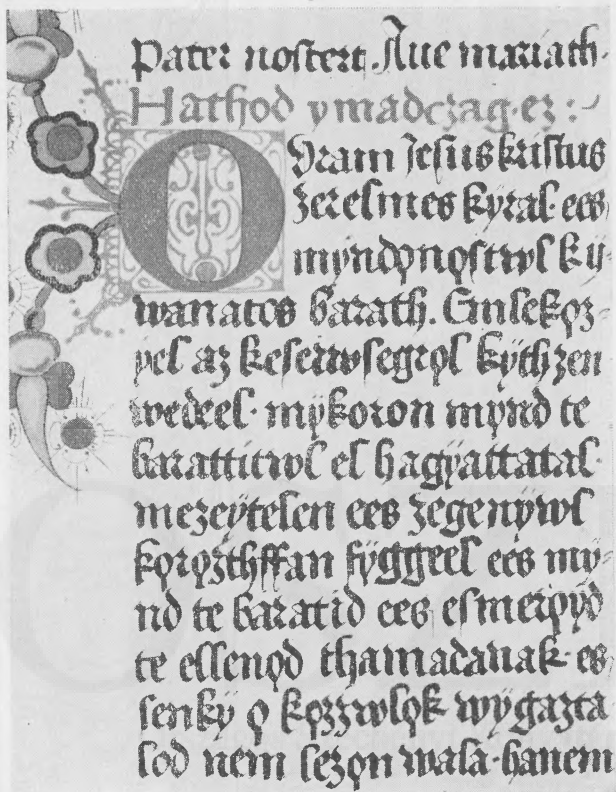 Pater nostert. Aue mariath·
Hathod ymadczag·ez:
O Vram Jesus kristus
zerelmes kyral· ees
mÿndǫnǫstwl kÿ=
wanatos barath. Emlekǫz=
ÿel az keserwsegrǫl kÿth zen
wedeel· mÿkoron mÿnd te
barattitwl el hagÿattatal·
mezeÿtelen ees zegenÿwl
kǫrǫzthffan fÿggeel ees mÿ=
nd te baratid ees esmerǫÿd
te ellenǫd thamadanak· es
senkÿ ǫ kǫzzwlǫk wÿgazta
lod nem lezǫn wala· hanem